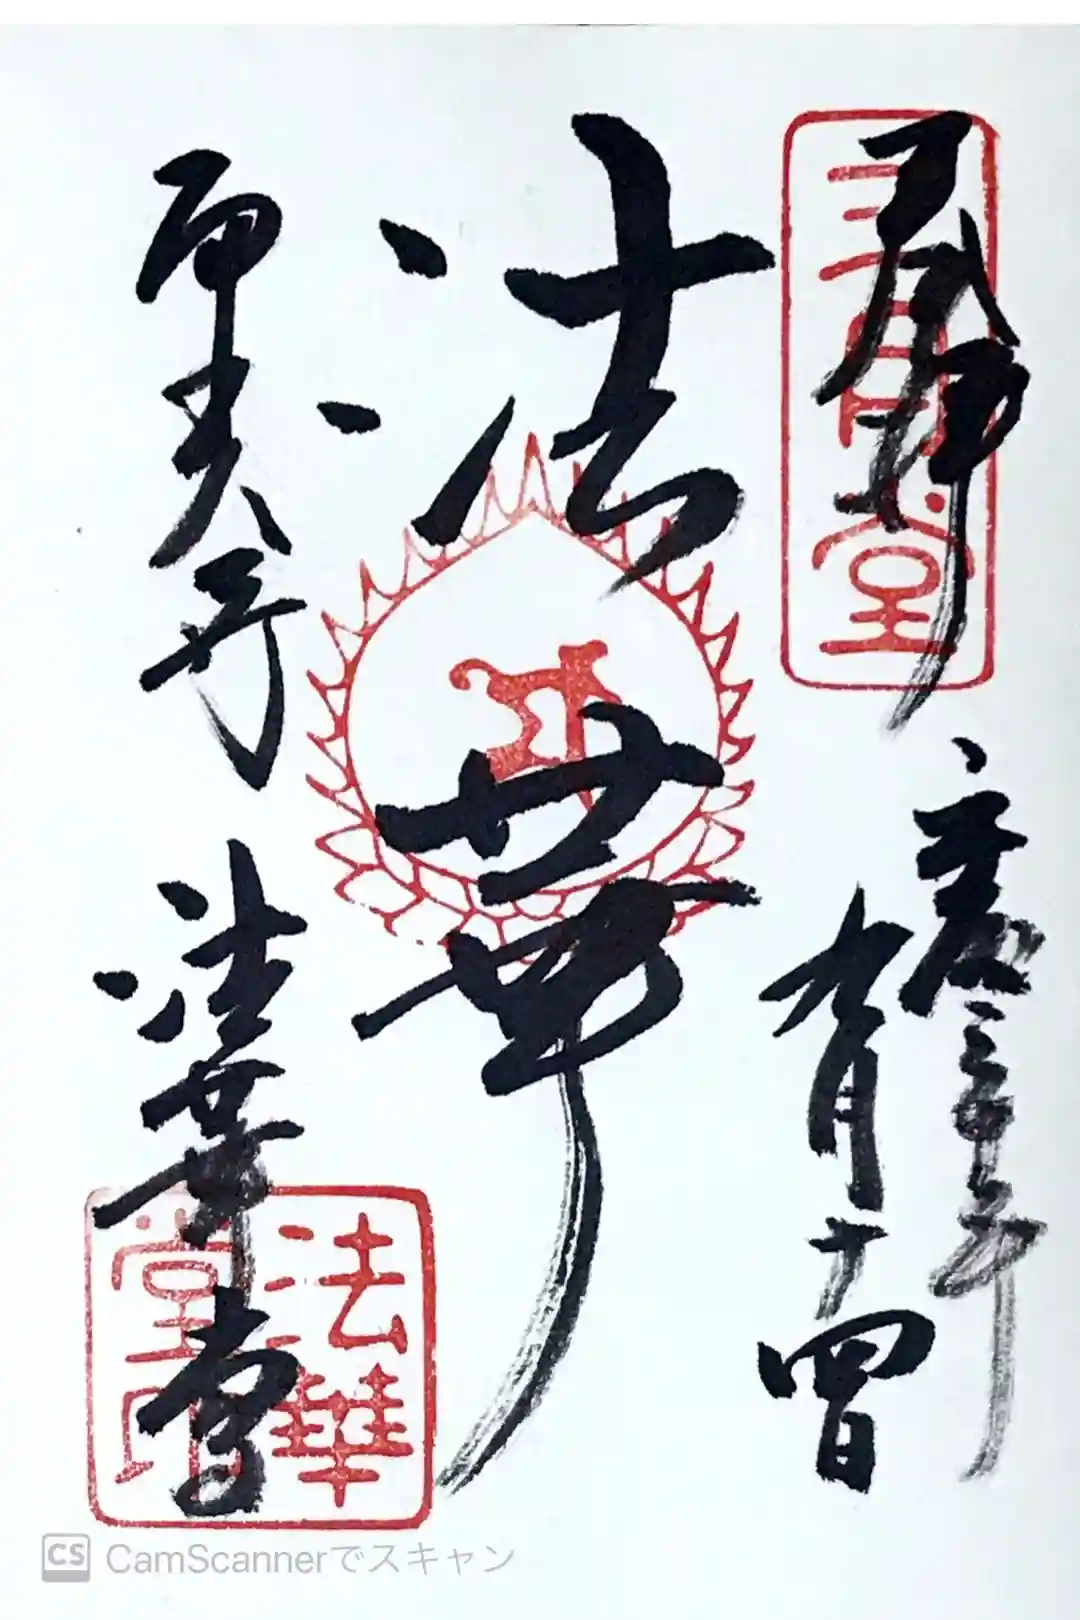 奉拝
三月堂
年
九月十四日
法華
東大寺
法華堂
法華
堂印
CS CamScannerでスキャン